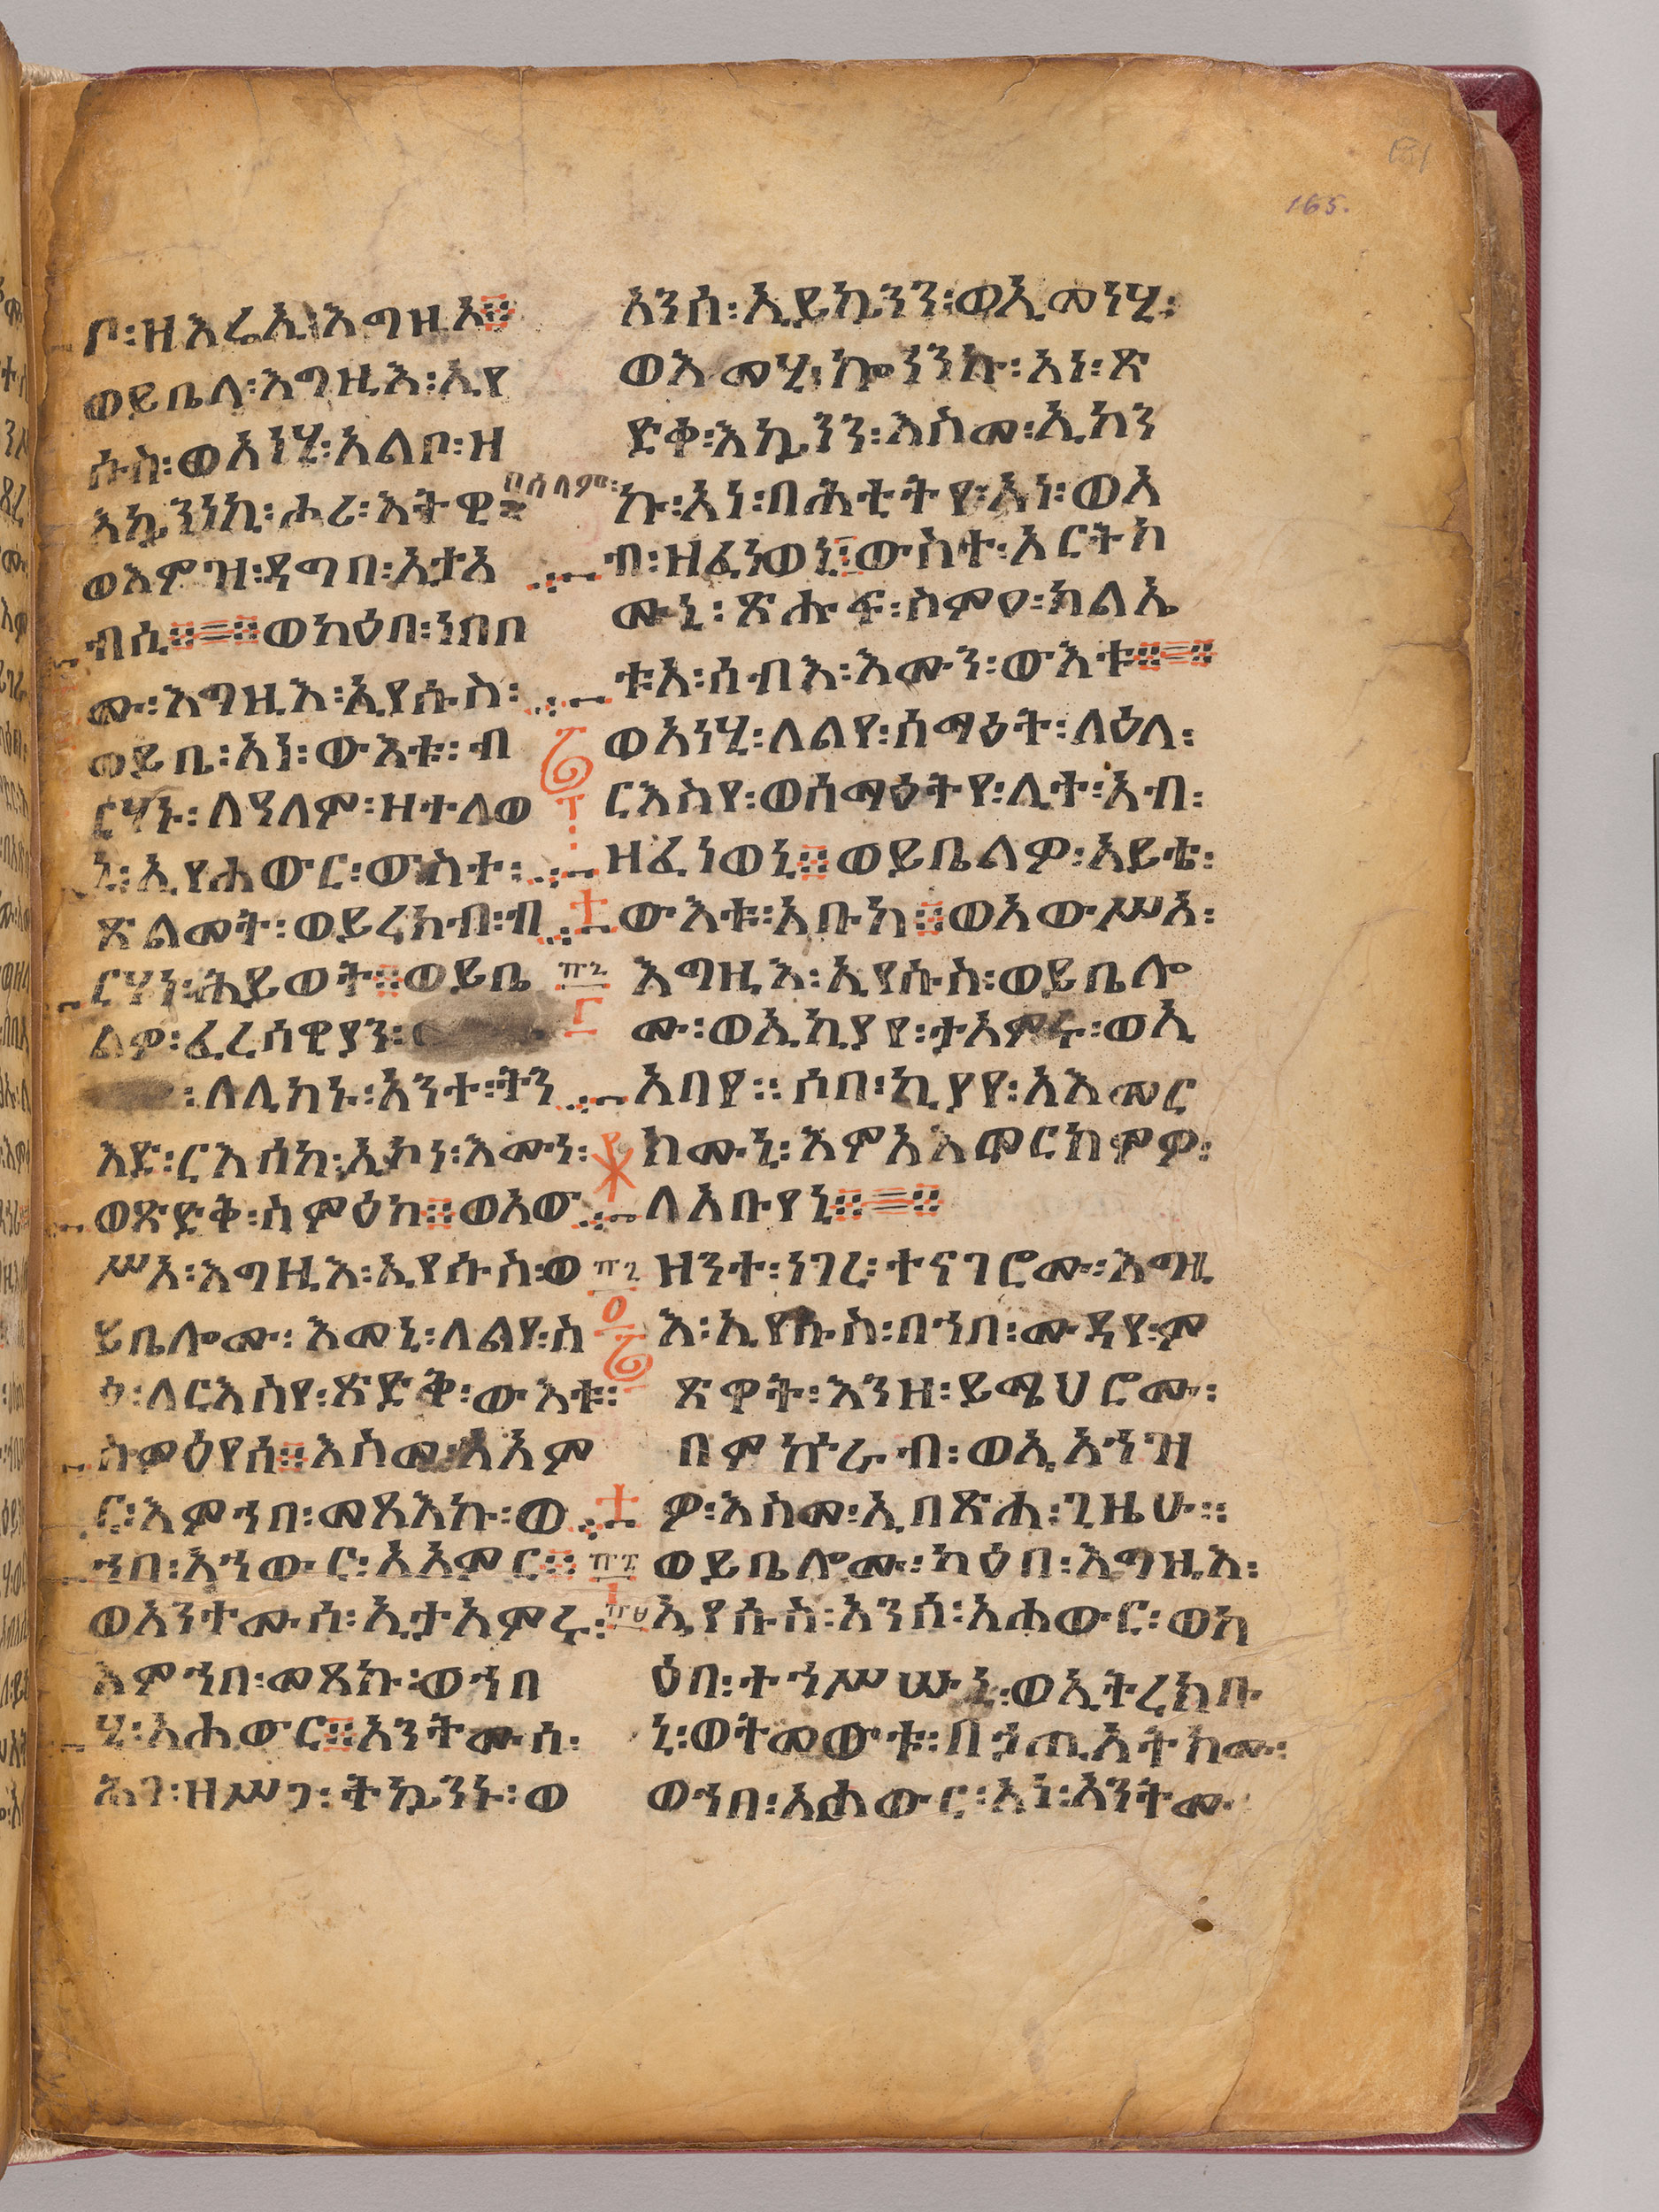 165.
ቦ፡ዘእሬኢ፡እግዚእ፨
ወይቤላ፡እግዚእ፡ኢየ
ሱስ፡ወአነሂ፡አልቦ፡ዘ
እኴንነኪ፡ሑሪ፡እትዊ፡
በሰላም፡
ወእምዝ፡ዳግበ፡ኢታአ
ብሲ፨=፨ወካዕበ፡ነበቦ
ሙ፡እግዚእ፡ኢየሱስ፡
ወይቤ፡አነ፡ውእቱ፡ብ
ርሃኑ፡ለዓለም፡ዘተለወ
ኒ፡ኢየሐውር፡ውስተ፡
ጽልመት፡ወይረክብ፡ብ
ርሃነ፡ሕይወት፨ወይቤ
ልዎ፡ፈሪሰዊያን፡
፡ለሊከኑ፡አንተ፡ትን
እድ፡ርእሰከ፡ኢኮነ፡እሙነ፡
ወጽድቅ፡ስምዕከ፨ወአው
ሥአ፡እግዚእ፡ኢየሱስ፡ወ
ይቤሎሙ፡እመኒ፡ለልየ፡ስ
ዕ፡ለርእስየ፡ጽድቅ፡ውእቱ፡
ስምዕየሰ፨እስመ፡አአም
ር፡እምኀበ፡መጻእኩ፡ወ
ኀበ፡አኀውር፡አአምር፨
ወአንተሙሰ፡ኢታአምሩ፡
እምኀበ፡መጻኩ፡ወኀበ
ሂ፡አሐውር፨አንትሙሰ፡
ሕገ፡ዘሥጋ፡ትኴንኑ፡ወ
አንሰ፡ኢይኴንን፡ወኢመነሂ፡
ወእመሂ፡ኰነንኩ፡አነ፡ጽ
ድቀ፡እኴንን፡እስመ፡ኢኮን
ኩ፡አነ፡በሕቲትየ፡አነ፡ወአ
ብ፡ዘፈነወኒ፨ውስተ፡ኦርትክ
ሙኒ፡ጽሑፍ፡ስምዐ፡ክልኤ
ቱ፡እ፡ሰብእ፡እሙን፡ውእቱ፨=፨
ወአነሂ፡ለልየ፡ሰማዕት፡ለዕለ፡
ርእስየ፡ወሰማዕትየ፡ሊተ፡አብ፡
ዘፈነወኒ፨ወይቤልዎ፡አይቴ፡
ውእቱ፡አቡከ፨ወአውሥአ፡
እግዚእ፡ኢየሱስ፡ወይቤሎ
ሙ፡ወኢኪያየ፡ታአምሩ፡ወኢ
አበየ፡፡ሶበ፡ኪያየ፡አእመር
ክሙኒ፡እምአእመርክምዎ፡
ለአቡየኒ፨=፨
ዘንተ፡ነገረ፡ተናገሮሙ፡እግዚ
እ፡ኢየሱስ፡በኀበ፡ሙዳየ፡ም
ጽዋት፡እንዘ፡ይሜህሮሙ፡
በምኵራብ፡ወኢአኀዝ
ዎ፡እስመ፡ኢበጽሐ፡ጊዜሁ፡፡
ወይቤሎሙ፡ካዕበ፡እግዚእ፡
ኢየሱስ፡አንሰ፡አሐውር፡ወካ
ዕበ፡ተኀሥሡኒ፡ወኢትረክቡ
ኒ፡ወትመውቱ፡በኃጢአትክሙ፡
ወኀበ፡አሐውር፡አነ፡አንትሙ